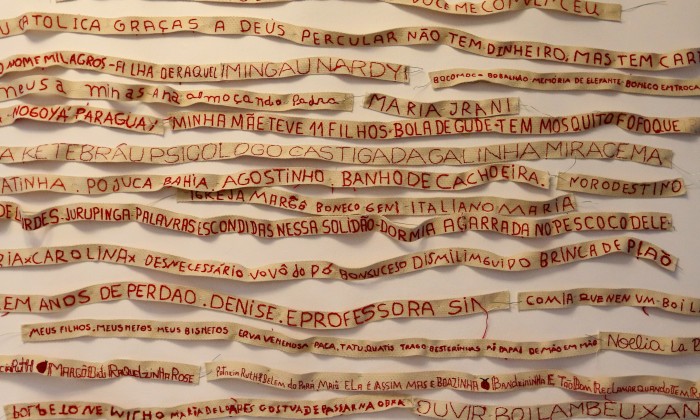 VENCEU
CATOLICA GRAÇAS A DEUS - PERCULAR NÃO TEM DINHEIRO, MAS TEM CAR
O NOME MILAGROS - FILHA DE RAQUEL MINGAU NARDY
BONECO EM TROCA
MEMÓRIA DE ELEFANTE
meus a minas ana almoçando Pedra
MARIA JRANI
NOGOYA PARAGUAI
MINHA MÃE TEVE 11 FILHOS - BOLA DE GUDE - TEM MOSQUITO FOFOQUE
A KETEBRÃU PSICOLOGO CASTIGADA GALINHA MIRACEMA
ATINHA. POJUCA BAHIA. AGOSTINHO. BANHO DE CACHOEIRA.
MORO DESTINO
IGREJA MARÉS BONECO GENI - ITALIANO MARIA
RDES. JURUPINGA - PALAVRAS ESCONDIDAS NESSA SOLIDÃO - DORMIA AGARRADA NO PESCOÇO DELE
RIA x CAROLINA x DESNECESSÁRIO VOVÔ do PÓ BONSUCESO DISMILIMGUIDO BRINCA DE PIÃO
EM ANOS DE PERDÃO. DENISE. E PROFESSORA SIM
COMIA QUE NEM UM BOI L
MEUS FILHOS, MEUS NETOS MEUS BISNETOS ERVA VENENOSA PACA, TATU, QUATIS TRAGO BESTERINHAS PÁ PAPAI DE MÃO EM MÃO
Noelia La R
MARGÔ Linda RAQUELZINHA ROSE
Patrícia Ruth Belém do Pará Maiô ELA É ASSIM MAS É BOAZINHA Bandeirinha E TÃO BOM RECLAMAR QUANDO TEM
MARIA DE LOURDES GOSTAVA DE PASSAR NA OBRA
OUVIR. BOI LAMBEU. XAX